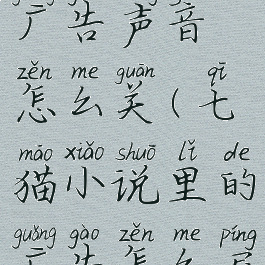 广告声音
zěn me guān qī
怎么关(七
māo xiǎo shuō lǐ de
猫小说里的
guǎng gào zěn me píng
广告怎么屏